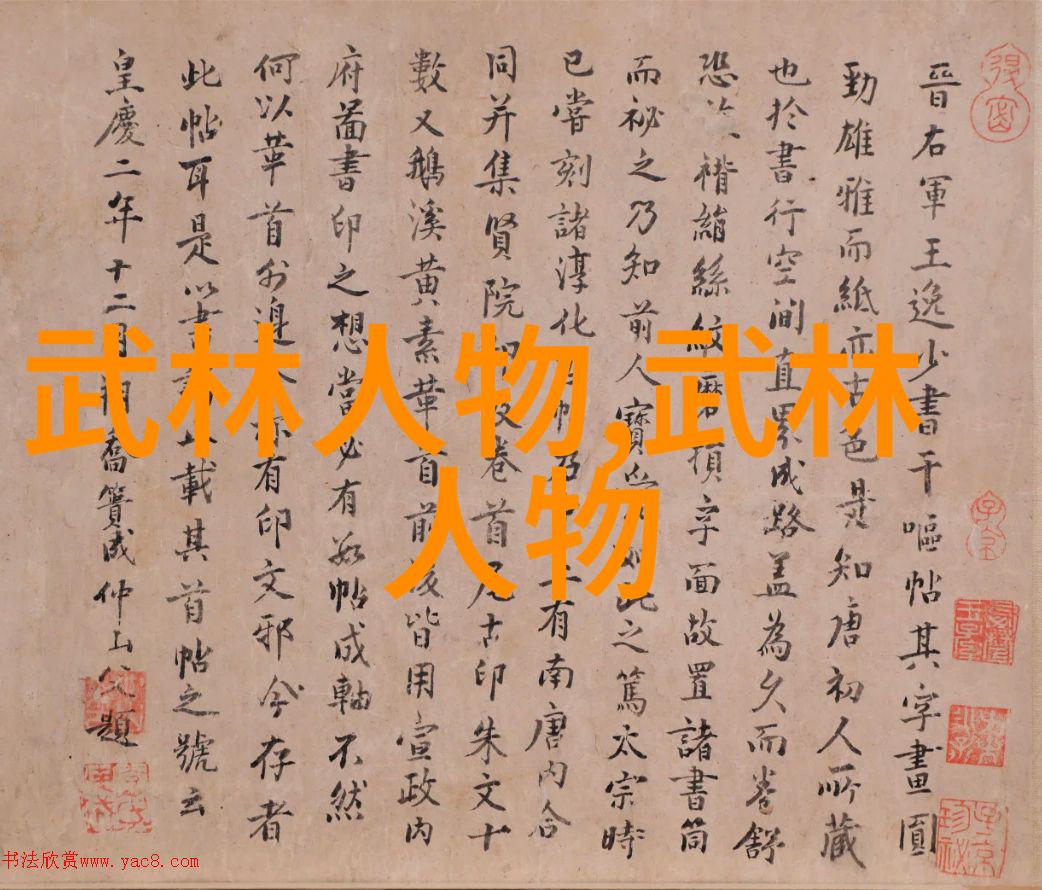 晉右軍王逸少書干嘔帖其字畫圓
勁雄雅而紙亦古色是知唐初人所藏
也於書行空澗直累成路蓋為久而卷舒
恐褙絹絲紋磨頂字面故置諸書筒
而祕之乃知前人寶此之篤太宗時
已嘗刻諸淳化有南唐內合
同并集賢院印及卷首尾古印朱文十
數又鵝溪黃素華首前後皆用宣政內
府啚書印之想當必有數帖成軸不然
何以華首外邊亦有印文邪今存者
此帖耳是以載其首帖之號云
皇慶二年十二月朔喬簣成仲山父題
武林人物,武林
人物
书法欣赏www.yac8.com